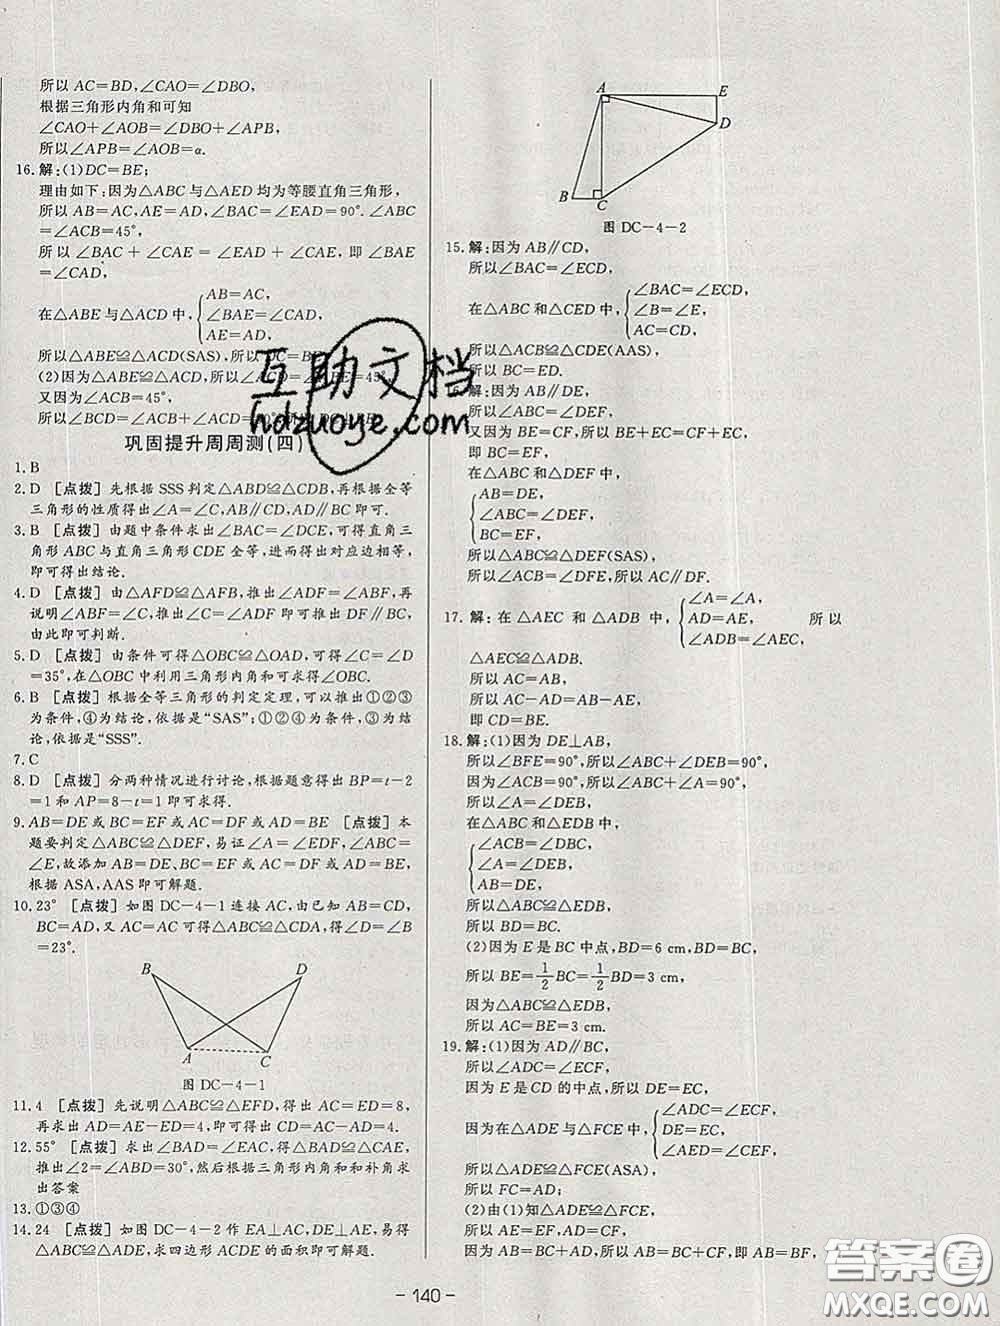 所以 AC=BD,∠CAO=∠DBO,
根据三角形内角和可知
∠CAO+∠AOB=∠DBO+∠APB,
所以∠APB=∠AOB=α.
16.解:(1)DC=BE;
理由如下:因为△ABC与△AED均为等腰直角三角形,
所以 AB=AC,AE=AD,∠BAC=∠EAD=90°.∠ABC
=∠ACB=45°,
所以 ∠BAC+∠CAE=∠EAD+∠CAE,即∠BAE
=∠CAD,
在△ABE与△ACD中,
AB=AC,
∠BAE=∠CAD,
AE=AD,
所以△ABE≌△ACD(SAS),所以DC=BE;
(2)因为△ABE≌△ACD,所以∠ACD=∠ABE=45°
又因为∠ACB=45°,
所以∠BCD=∠ACB+∠ACD=90°,
巩固提升周周测(四)
1.B
2.D [点拨] 先根据SSS判定△ABD≌△CDB,再根据全等
三角形的性质得出∠A=∠C,AB∥CD,AD∥BC即可.
3.B [点拨] 由题中条件求出∠BAC=∠DCE,可得直角三
角形ABC与直角三角形CDE全等,进而得出对应边相等,
即可得出结论.
4.D [点拨] 由△AFD≌△AFB,推出∠ADF=∠ABF,再
说明∠ABF=∠C,推出∠C=∠ADF即可推出DF∥BC,
由此即可判断.
5.D [点拨] 由条件可得△OBC≌△OAD,可得∠C=∠D
=35°,在△OBC中利用三角形内角和可求得∠OBC.
6.B [点拨] 根据全等三角形的判定定理,可以推出①②③
为条件,④为结论,依据是“SAS”;①②④为条件,③为结
论,依据是“SSS”.
7.C
8.D [点拨] 分两种情况进行讨论,根据题意得出BP=t-2
=1和AP=8-t=1即可求得.
9.AB=DE或BC=EF或AC=DF或AD=BE [点拨] 本
题要判定△ABC≌△DEF,易证∠A=∠EDF,∠ABC=
∠E,故添加AB=DE、BC=EF或AC=DF或AD=BE,
根据ASA,AAS即可解题.
10.23° [点拨] 如图DC-4-1连接AC,由已知AB=CD,
BC=AD,又AC=AC可得△ABC≌△CDA,得∠D=∠B
=23°.
B
D
A
C
图 DC-4-1
11.4 [点拨] 先说明△ABC≌△EFD,得出AC=ED=8,
再求出AD=AE-ED=4,即可得出CD=AC-AD=4.
12.55° [点拨] 求出∠BAD=∠EAC,得△BAD≌△CAE,
推出∠2=∠ABD=30°,然后根据三角形内角和和补角求
出答案
13.①③④
14.24 [点拨] 如图DC-4-2作EA⊥AC,DE⊥AE,易得
△ABC≌△ADE,求四边形ACDE的面积即可解题.
A
E
D
B
C
图 DC-4-2
15.解:因为AB∥CD,
所以∠BAC=∠ECD,
在△ABC和△CED中,
∠BAC=∠ECD,
∠B=∠E,
AC=CD,
所以△ACB≌△CDE(AAS),
所以BC=ED.
解:因为AB∥DE,
所以∠ABC=∠DEF,
又因为BE=CF,所以BE+EC=CF+EC,
即BC=EF,
在△ABC和△DEF中,
AB=DE,
∠ABC=∠DEF,
BC=EF,
所以△ABC≌△DEF(SAS),
所以∠ACB=∠DFE,所以AC∥DF.
17.解:在△AEC和△ADB中,
∠A=∠A,
AD=AE,
∠ADB=∠AEC,
所以
△AEC≌△ADB.
所以AC=AB,
所以AC-AD=AB-AE,
即CD=BE.
18.解:(1)因为DE⊥AB,
所以∠BFE=90°,所以∠ABC+∠DEB=90°,
因为∠ACB=90°,所以∠ABC+∠A=90°,
所以∠A=∠DEB,
在△ABC和△EDB中,
∠ACB=∠DBC,
∠A=∠DEB,
AB=DE,
所以△ABC≌△EDB,
所以BD=BC.
(2)因为E是BC中点,BD=6 cm,BD=BC,
所以BE=1/2BC=1/2BD=3 cm,
因为△ABC≌△EDB,
所以AC=BE=3 cm.
19.解:(1)因为AD∥BC,
所以∠ADC=∠ECF,
因为E是CD的中点,所以DE=EC,
因为在△ADE与△FCE中,
∠ADC=∠ECF,
DE=EC,
∠AED=∠CEF,
所以△ADE≌△FCE(ASA),
所以FC=AD;
(2)由(1)知△ADE≌△FCE,
所以AE=EF,AD=CF,
因为AB=BC+AD,所以AB=BC+CF,即AB=BF,
- 140 -
互助文档
hdzuoye.com
答案圈
MXQE.COM